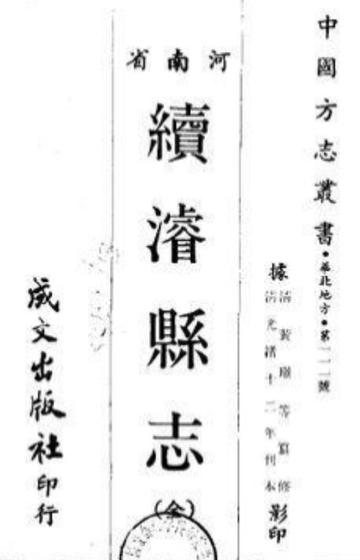 中國方志叢書・華北地方・第一一一號
據清黃璟等纂修清光緒十二年刊本影印
河南省
續濬縣志
(全)
成文出版社印行